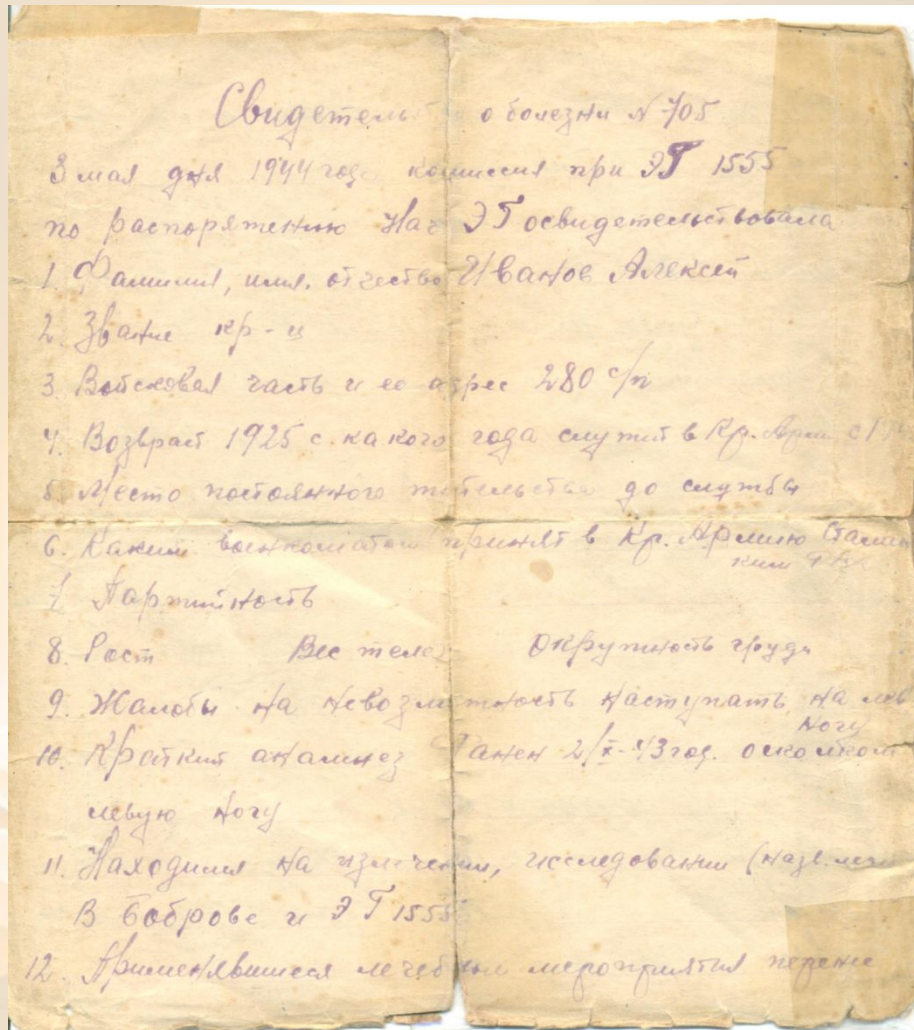 Свидетель о болезни N 705
3 мая дня 1944 года комиссия при ЭГ 1555
по распоряжению Нач ЭГ освидетельствовала
1. Фамилия, имя, отчество Иванов Алексей
2. Звание кр-ц
3. Войсковая часть и ее адрес 280 с/п
4. Возвраст 1925 с какого года служит в Кр. Арм с
5. Место постоянного жительства до службы
6. Каким военкоматом принят в Кр. Армию Сталин
ким
7. Партийность
8. Рост Вес тела Окружность груди
9. Жалобы на невозможность наступать на лев
ногу
10. Краткий анамнез Ранен 2/X-43 год. осколком
левую ногу
11. Находился на излечении, исследовании (назв. леч
В Боброве и ЭГ 1555
12. Применявшиеся лечебные мероприятия перене